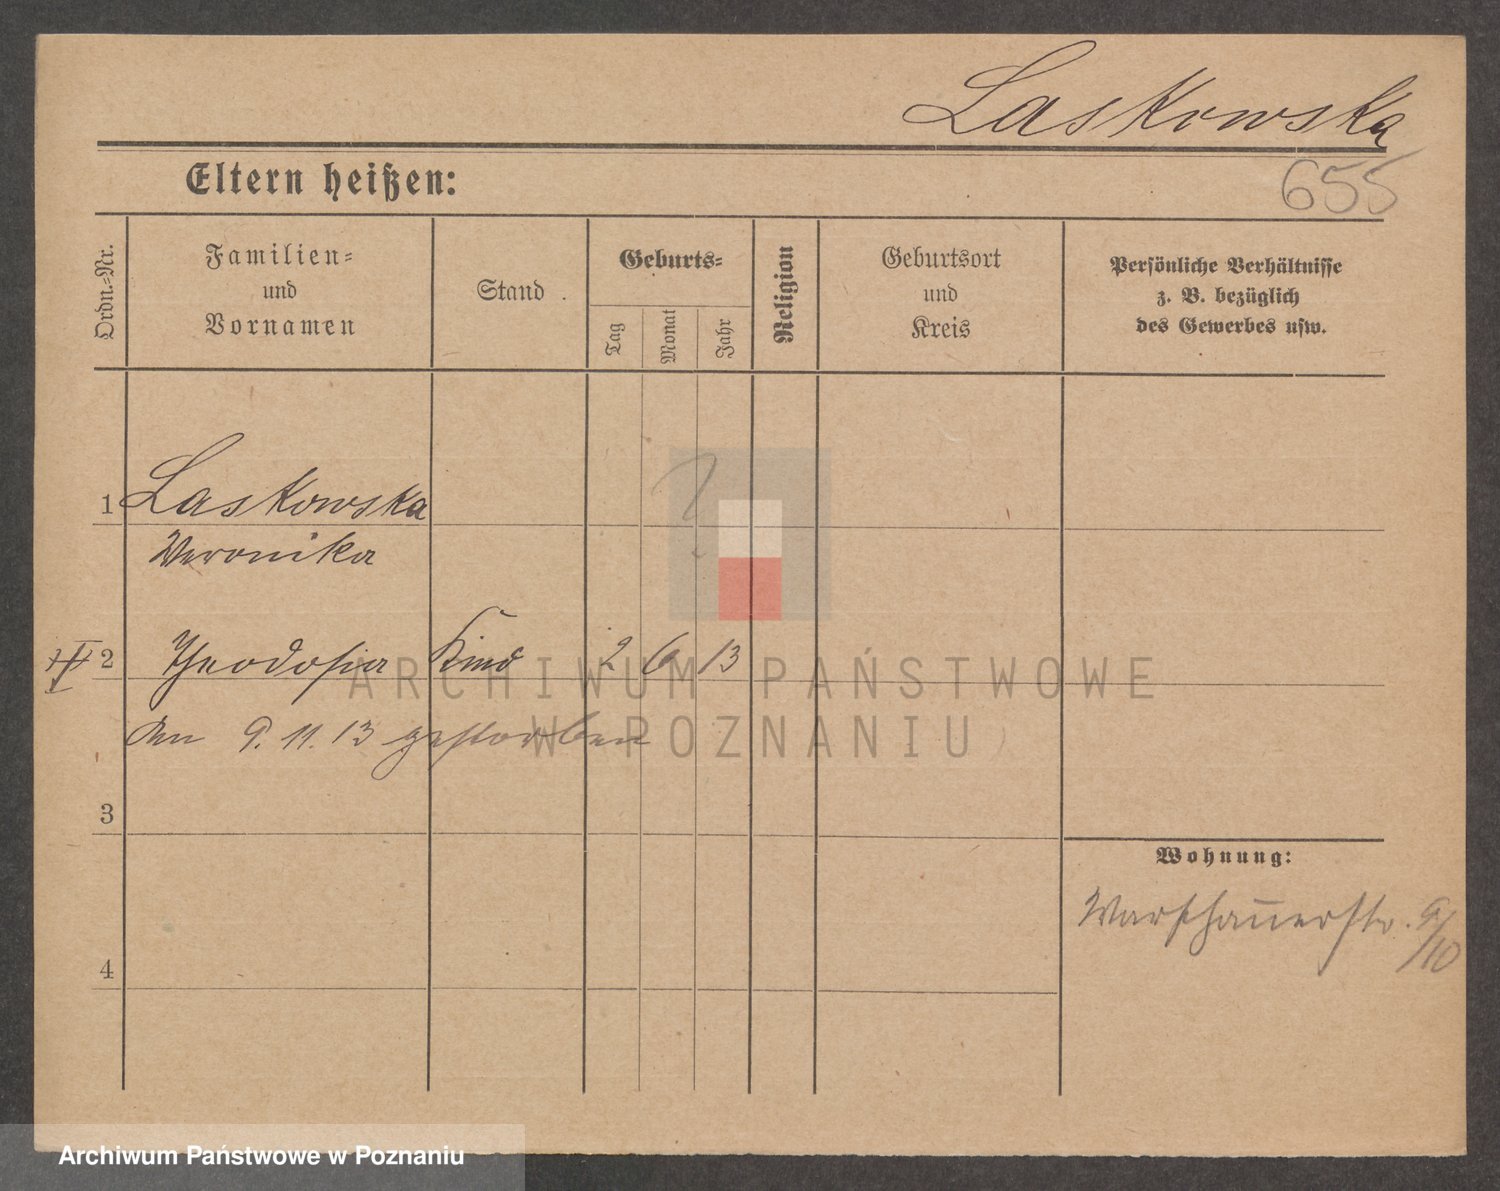 Laskowska
Eltern heißen:
655
Ordn.-Nr.
Familien-
und
Vornamen
Stand
Geburts-
Tag
Monat
Jahr
Religion
Geburtsort
und
Kreis
Persönliche Verhältnisse
z. B. bezüglich
des Gewerbes usw.
1 Laskowska ?
Veronika
2 Theodosia Kind 2 6 13
Am 9. 11. 13 gestorben
3
Wohnung:
Warschauerstr. 9/10
4
ARCHIWUM PAŃSTWOWE
W POZNANIU
Archiwum Państwowe w Poznaniu